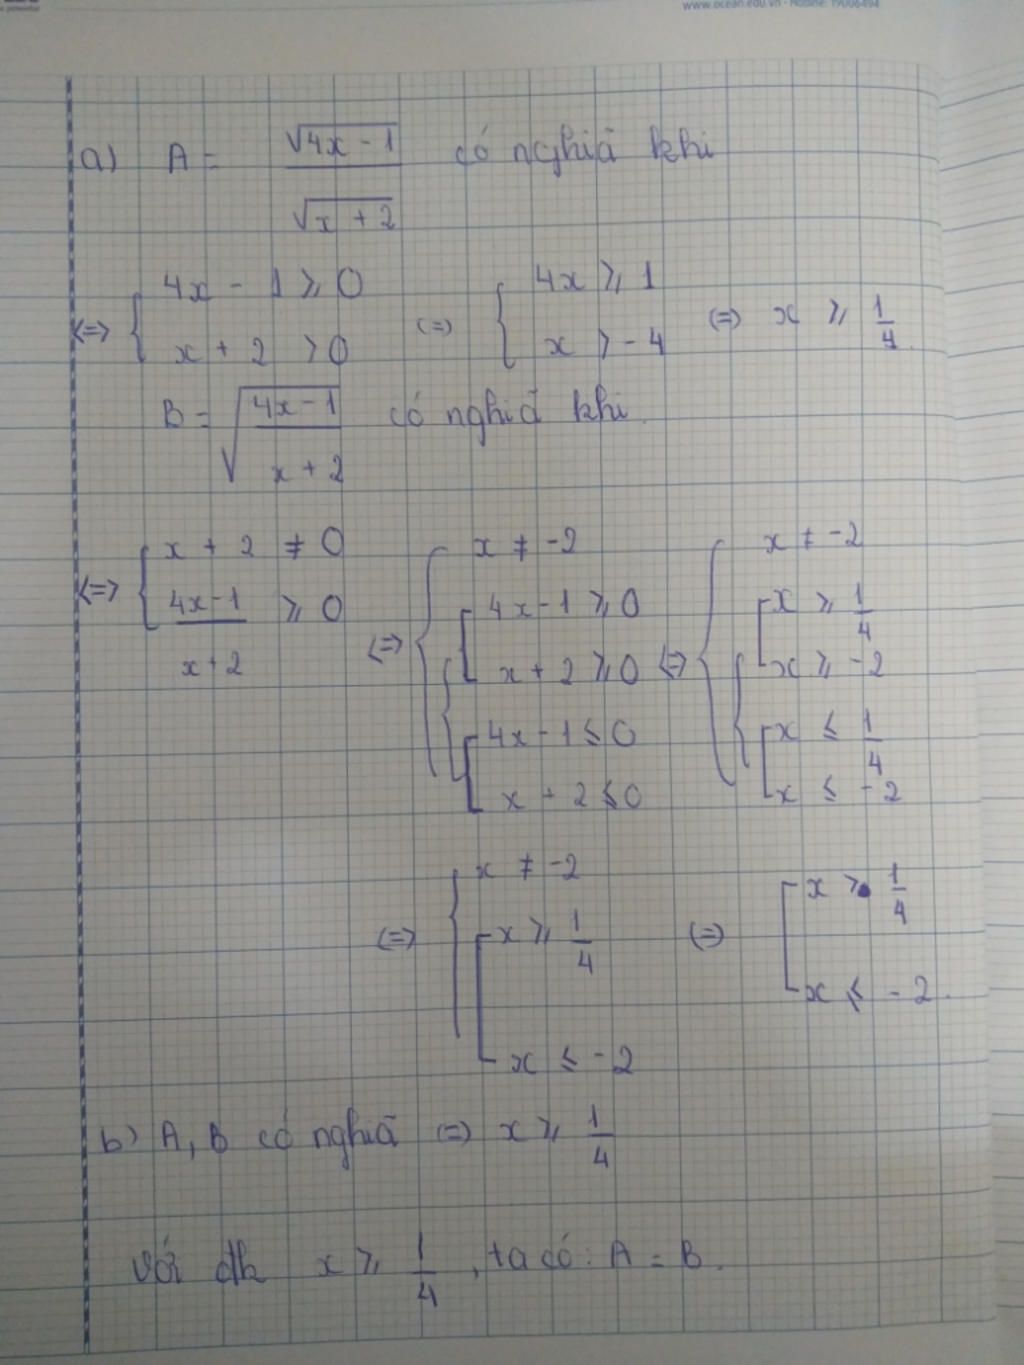 www.ocean.edu.vn - Hotline: 19006494
a) A = √(4x - 1) / √(x + 2) có nghiã khi
<=> { 4x - 1 ⩾ 0 ; x + 2 > 0 (=) { 4x ⩾ 1 ; x > -4 (=) x ⩾ 1/4
B = √((4x-1)/(x+2)) có nghiã khi
<=> { x + 2 ≠ 0 ; (4x-1)/(x+2) ⩾ 0 <=> { x ≠ -2 ; { [ 4x-1 ⩾ 0 ; x+2 ⩾ 0 ; [ 4x-1 ⩽ 0 ; x+2 ⩽ 0 <=> { x ≠ -2 ; { [ x ⩾ 1/4 ; x ⩾ -2 ; [ x ⩽ 1/4 ; x ⩽ -2
(=) { x ≠ -2 ; [ x ⩾ 1/4 ; x ⩽ -2 (=) [ x ⩾ 1/4 ; x ⩽ -2.
b) A, B có nghiã (=) x ⩾ 1/4
với đk x ⩾ 1/4, ta có: A = B.